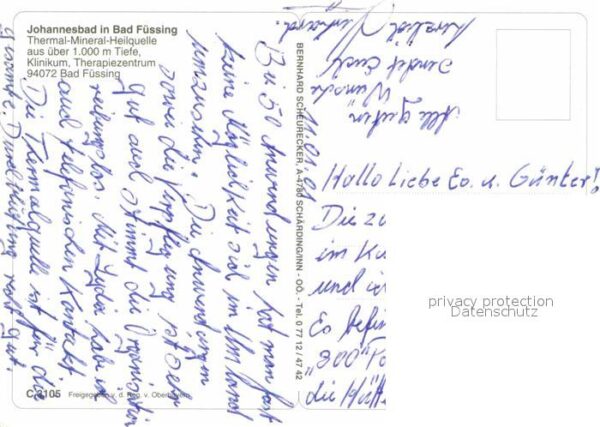 Johannesbad in Bad Füssing
Thermal-Mineral-Heilquelle
aus über 1.000 m Tiefe,
Klinikum, Therapiezentrum
94072 Bad Füssing
BERNHARD SCHEURECKER, A-4780 SCHÄRDING/INN - OÖ. - Tel. 0 77 12 / 47 42
11.01.01
Hallo Liebe Eo. u. Günter!
Die zu
im Ku
und
Eo befin
"800" Fo
die
Bei 50 Anwendungen hat man fast
keine Möglichkeit sich im Umland
umzusehen. Die Anwendungen
sowie die Verpflegung ist sehr
gut auch stimmt die Organisation
reibungslos. Mit Lydia hab ich
auch telefonischen Kontakt
Die Thermalquelle ist für die
gesamte Durchblutung recht gut.
Alle guten
Wünsche
sendet Euch
herzlich
C 3105 Freigegeben v. d. Reg. v. Oberbayern
privacy protection
Datenschutz